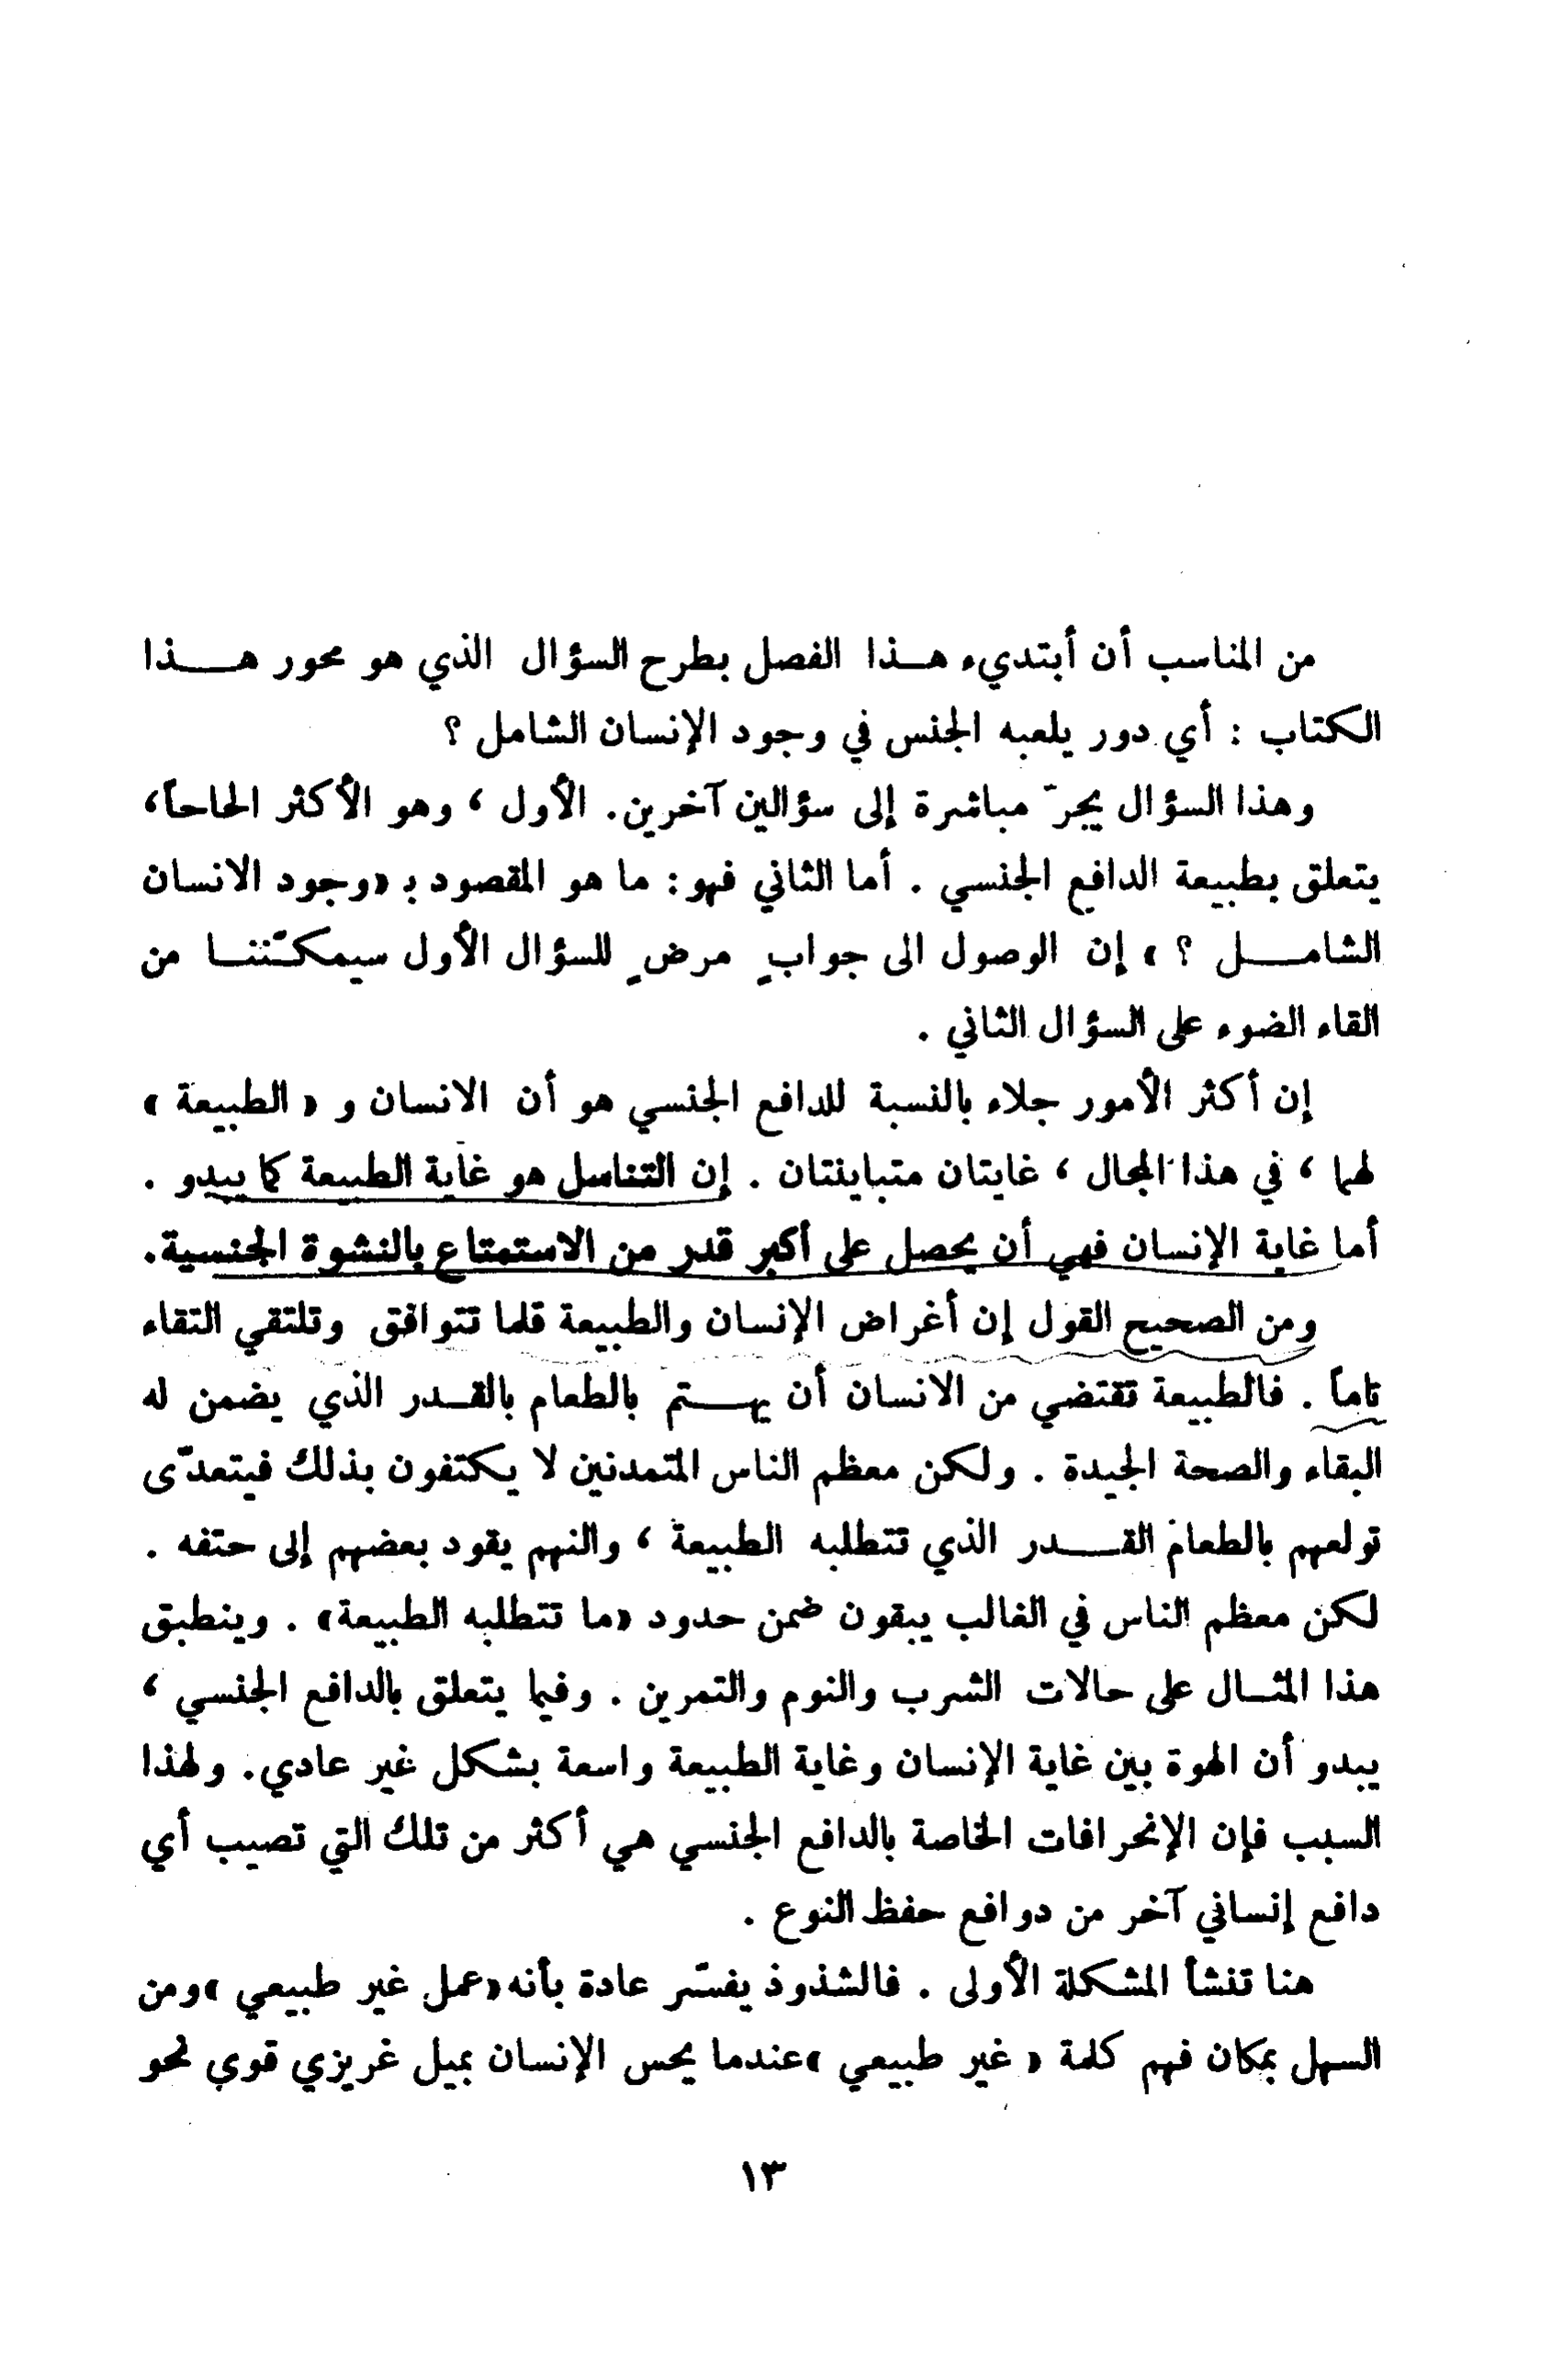 من المناسب أن أبتديء هذا الفصل بطرح السؤال الذي هو محور هذا
الكتاب : أي دور يلعبه الجنس في وجود الإنسان الشامل ؟
وهذا السؤال يجرّ مباشرة إلى سؤالين آخرين. الأول ، وهو الأكثر الحاحاً،
يتعلق بطبيعة الدافع الجنسي . أما الثاني فهو: ما هو المقصود بـ «وجود الانسان
الشامل ؟ » إن الوصول الى جوابٍ مرضٍ للسؤال الأول سيمكّننا من
القاء الضوء على السؤال الثاني .
إن أكثر الأمور جلاء بالنسبة للدافع الجنسي هو أن الانسان و « الطبيعة »
لهما ، في هذا المجال ، غايتان متباينتان . إن التناسل هو غاية الطبيعة كما يبدو .
أما غاية الإنسان فهي أن يحصل على أكبر قدر من الاستمتاع بالنشوة الجنسية.
ومن الصحيح القول إن أغراض الإنسان والطبيعة قلما تتوافق وتلتقي التقاء
تاماً . فالطبيعة تقتضي من الانسان أن يهتم بالطعام بالقدر الذي يضمن له
البقاء والصحة الجيدة . ولكن معظم الناس المتمدنين لا يكتفون بذلك فيتعدّى
تولعهم بالطعام القدر الذي تتطلبه الطبيعة ، والنهم يقود بعضهم إلى حتفه .
لكن معظم الناس في الغالب يبقون ضمن حدود «ما تتطلبه الطبيعة» . وينطبق
هذا المثال على حالات الشرب والنوم والتمرين . وفيما يتعلق بالدافع الجنسي ،
يبدو أن الهوة بين غاية الإنسان وغاية الطبيعة واسعة بشكل غير عادي. ولهذا
السبب فإن الإنحرافات الخاصة بالدافع الجنسي هي أكثر من تلك التي تصيب أي
دافع إنساني آخر من دوافع حفظ النوع .
هنا تنشأ المشكلة الأولى . فالشذوذ يفسّر عادة بأنه «عمل غير طبيعي » ومن
السهل بمكان فهم كلمة « غير طبيعي » عندما يحس الإنسان بميل غريزي قوي نحو
١٣